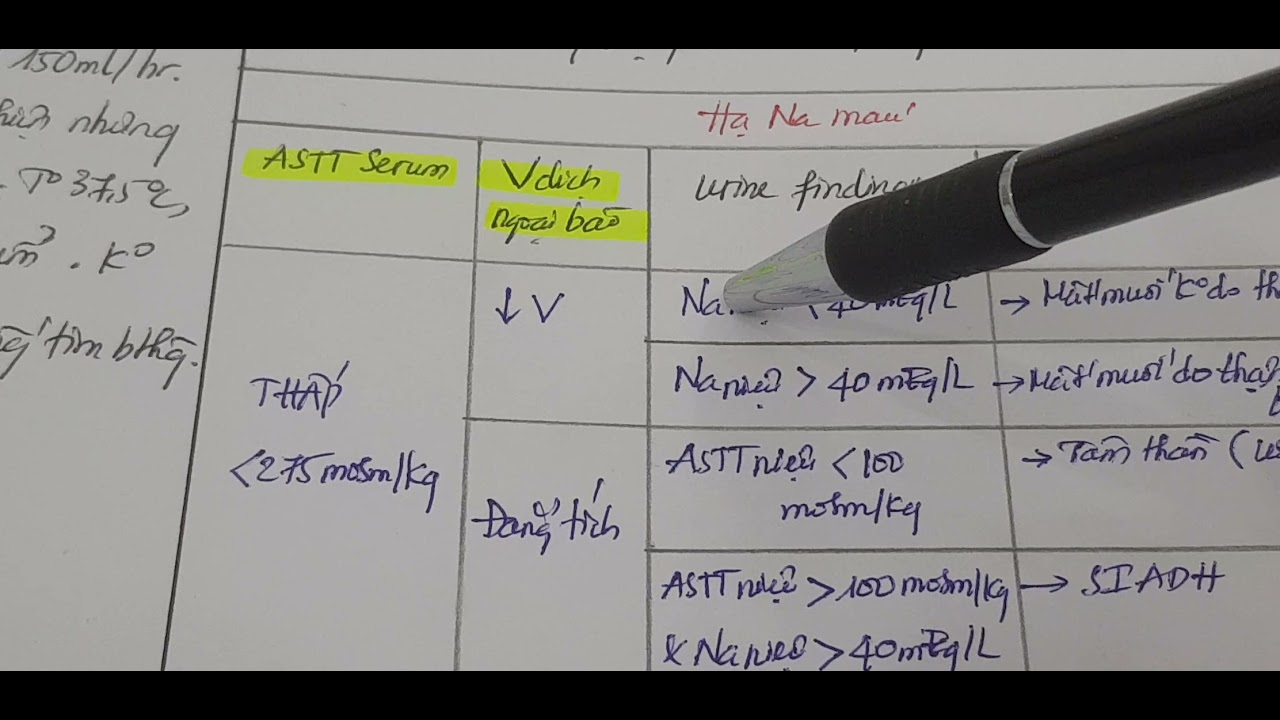 150ml/hr.
những
T° 37,5°C,
. K°
tim bthg.
Hạ Na máu
ASTT Serum
V dịch
ngoại bào
urine finding
↓ V
Na
40 mEq/L
→ Mất muối k° do th
Na niệu > 40 mEq/L
→ Mất muối do thận
THẤP
<275 mosm/kg
ASTT niệu < 100
mosm/kg
→ Tâm thần (
Đẳng tích
ASTT niệu > 100 mosm/kg
→ SIADH
& Na niệu > 40 mEq/L